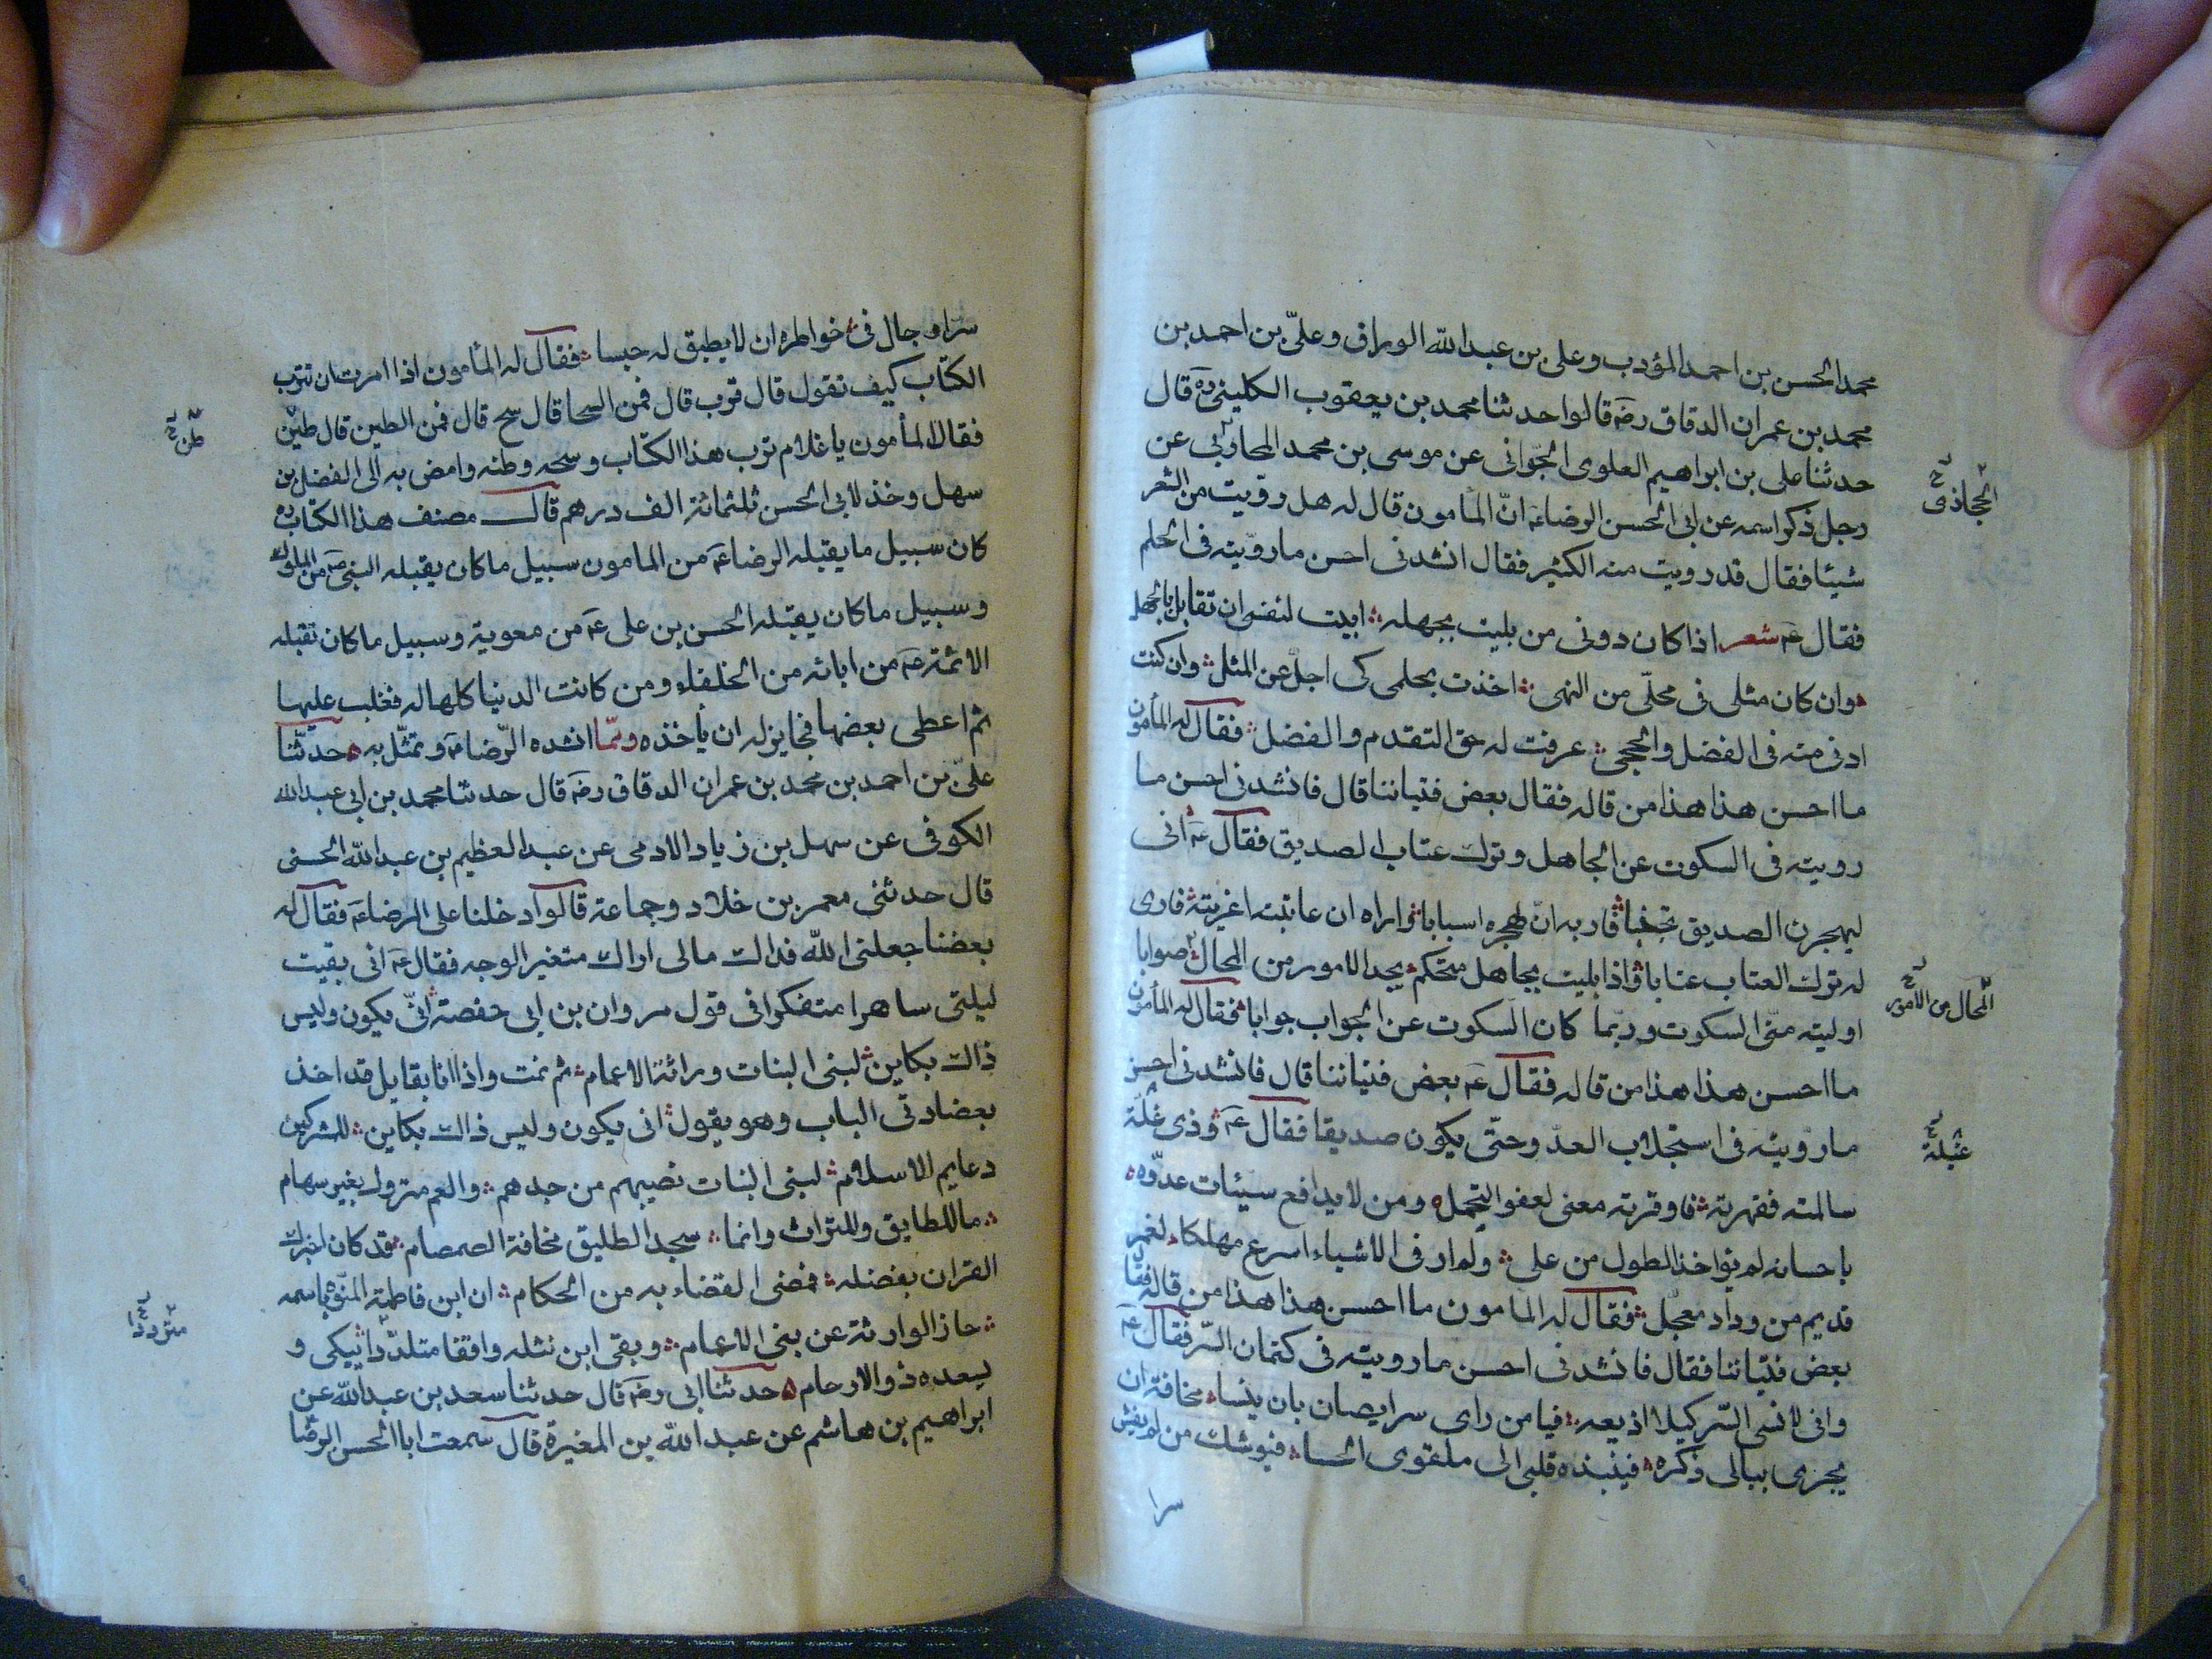 محمد الحسن بن احمد المؤدب وعلى بن عبد الله الوراق وعلىّ بن احمد بن
محمد بن عمران الدقاق رضه قالوا حدثنا محمد بن يعقوب الكلينى ره قال
حدثنا على بن ابراهيم العلوى الجوّانى عن موسى بن محمد المحاربى عن
رجل ذكر اسمه عن ابى الحسن الرضا عه انّ المامون قال له هل روّيت من الشعر
شيئا فقال قد رويت منه الكثير فقال انشدنى احسن ما روّيته فى الحلم
فقال عه شعر اذا كان دونى من بليت بجهله ابيت لنفسى ان تقابل بالجهل
وان كان مثلى فى محلّى من النهى اخذت بحلمى كى اجلّ عن المثل وان كنت
ادنى منه فى الفضل والحجى عرفت له حق التقدم والفضل فقال له المأمون
ما احسن هذا هذا من قاله فقال بعض فتياننا قال فانشدنى احسن ما
رويته فى السكوت عن الجاهل وترك عتاب الصديق فقال عه انى
ليهجرن الصديق تجنبا فاربه انّ لهجره اسبابا واراه ان عاتبته اغريته فارى
له ترك العتاب عتابا واذا بليت بجاهل متحكم يجد الامور من المحال صوابا
اوليته منّى السكوت وربّما كان السكوت عن الجواب جوابا فقال له المأمون
ما احسن هذا هذا من قاله فقال عه بعض فتياننا قال فانشدنى احسن
ما روّيته فى استجلاب العدّو حتّى يكون صديقا فقال عه وذى غلّة
سالمته فقهرته فاوقرته معنى لعفو التجمل ومن لا يدافع سيئات عدّوه
باحسانه لم يؤاخذ الطول من على ولم ار فى الاشياء اسرع مهلكا لغمر
قديم من وداد معجّل فقال له المامون ما احسن هذا هذا من قاله فقا
بعض فتياننا فقال فانشدنى احسن ما رويته فى كتمان السّر فقال عه
وانى لانسى السّر كيلا اذيعه فيا من راى سرا يصان بان ينسا مخافة ان
يجرى ببالى ذكره فينبذه قلبى الى ملتقوى الحسا فيوشك من لم يفش
سرا
الحجاذى
المحال من الامور
غيلة
سرا وجال فى خواطره ان لا يطيق له حبسا فقال له المأمون اذا امرت ان تترب
الكتاب كيف تقول قال ترب قال فمن السحا قال سح قال فمن الطين قال طين
فقال المأمون يا غلام ترب هذا الكتاب وسحه وطنه وامض به الى الفضل بن
سهل وخذ لابى الحسن ثلثمائة الف درهم قال مصنف هذا الكتاب ره
كان سبيل ما يقبله الرضا عه من المامون سبيل ما كان يقبله النبى صه من الملوك
وسبيل ما كان يقبله الحسن بن على عه من معوية وسبيل ما كان تقبله
الائمة عه من ابائه من الخلفاء ومن كانت الدنيا كلها له فغلب عليها
ثم اعطى بعضها فجايز له ان ياخذه وممّا انشده الرّضا عه وتمثّل به حدثنا
علىّ بن احمد بن محمد بن عمران الدقاق رضه قال حدثنا محمد بن ابى عبد الله
الكوفى عن سهل بن زياد الادمى عن عبد العظيم بن عبد الله الحسنى
قال حدثنى معمر بن خلاد وجماعة قالوا دخلنا على الرضا عه فقال له
بعضنا جعلنى الله فداك مالى اراك متغير الوجه فقال عه انى بقيت
ليلتى ساهرا متفكرا فى قول مروان بن ابى حفصة انىّ يكون وليس
ذاك بكاين لبنى البنات وراثة الاعمام ثم نمت واذا انا بقايل قد اخذ
بعضادتى الباب وهو يقول انى يكون وليس ذاك بكاين للمشركين
دعايم الاسلام لبنى البنات نصيبهم من جدهم والعم متروك بغير سهام
ما للطايق وللتراث وانما سجد الطليق مخافة الصمصام قد كان اخبرك
القران بفضله فمضى القضاء به من الحكام ان ابن فاطمة المنوّه باسمه
حاز الوراثة عن بنى الاعمام وبقى ابن نثله واقفا متلدّدا يبكى و
يسعده ذو الارحام حدثنا ابى رضه قال حدثنا سعد بن عبد الله عن
ابراهيم بن هاشم عن عبد الله بن المغيرة قال سمعت ابا الحسن الرضا
طن
متردّدا